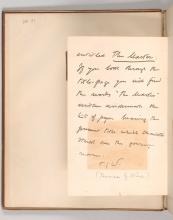 entitled The Master.
If you look through the
title-page you will find
the words "The Master"
written underneath the
bit of paper bearing the
present title which
the previous
name.
T. J. W.